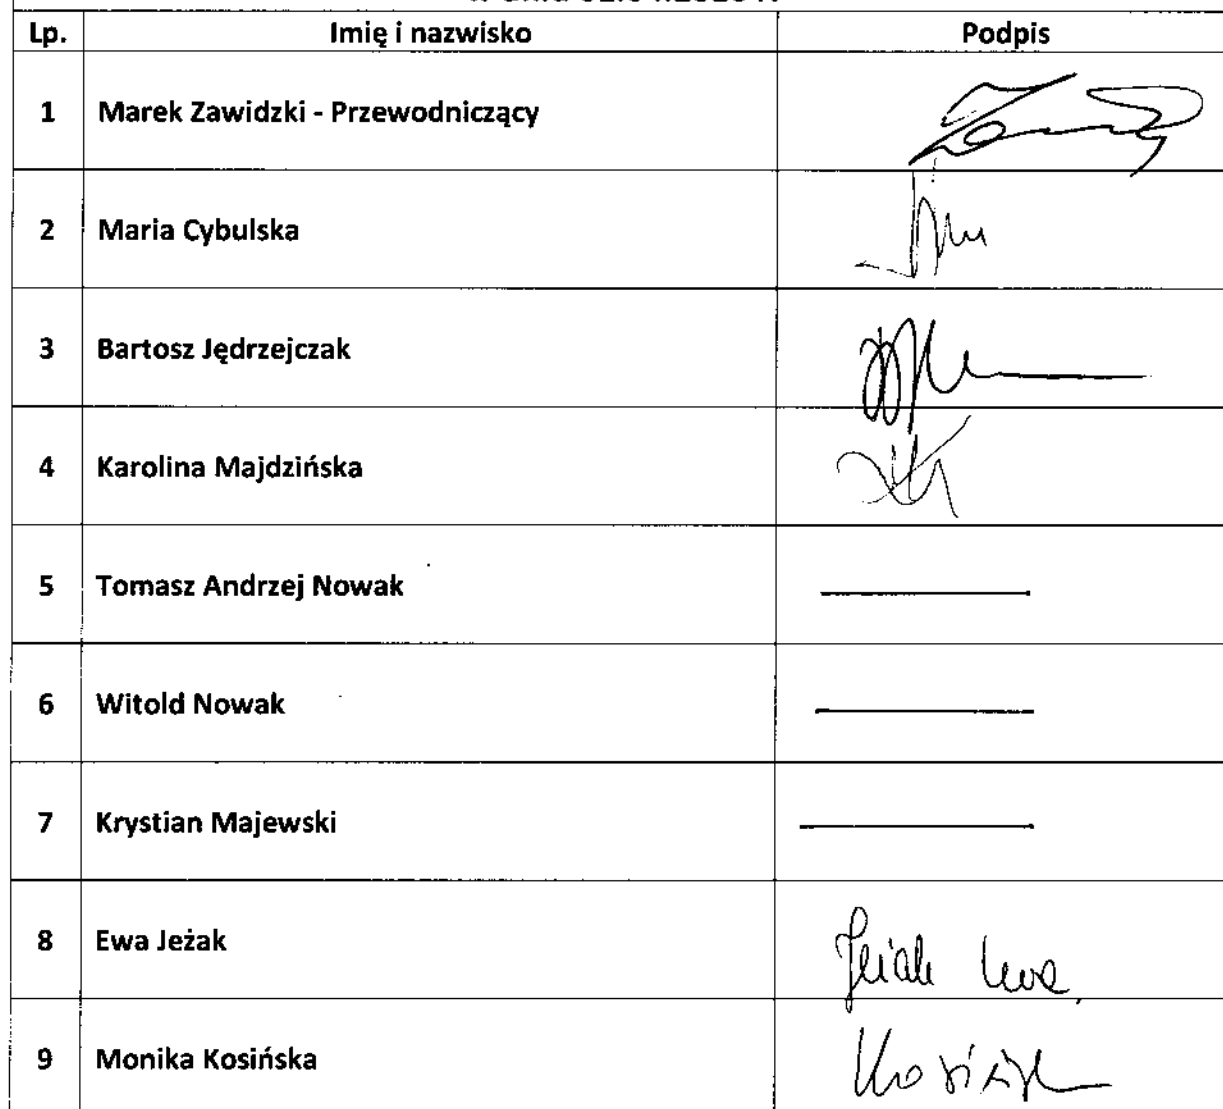 Lp. Imię i nazwisko Podpis
1 Marek Zawidzki - Przewodniczący
2 Maria Cybulska
3 Bartosz Jędrzejczak
4 Karolina Majdzińska
5 Tomasz Andrzej Nowak
6 Witold Nowak
7 Krystian Majewski
8 Ewa Jeżak Jeżak Ewa
9 Monika Kosińska